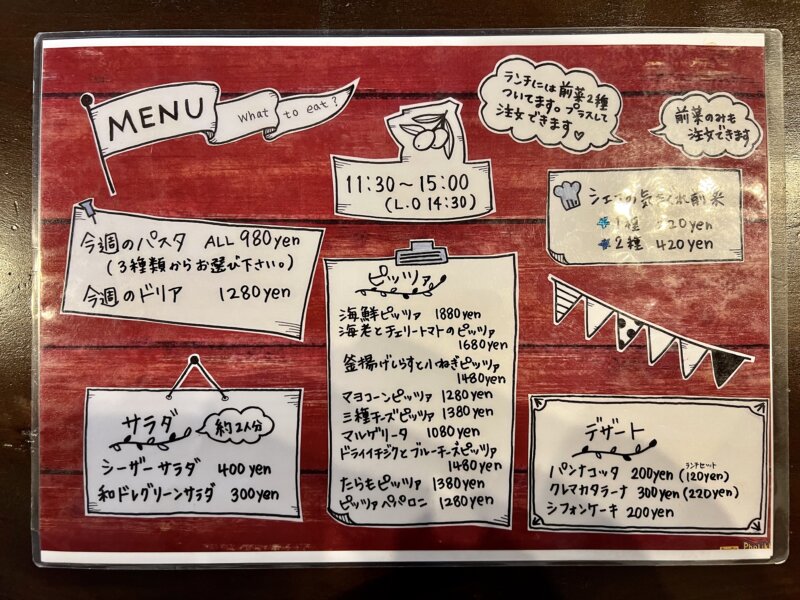 MENU
what to eat?
ランチには前菜2種
ついてます。プラスして
注文できます♡
前菜のみも
注文できます
11:30～15:00
(L.O 14:30)
の気まぐれ前菜
1種
2種 420yen
今週のパスタ ALL 980yen
(3種類からお選び下さい。)
今週のドリア 1280yen
ピッツァ
海鮮ピッツァ 1880yen
海老とチェリートマトのピッツァ
1680yen
釜揚げしらすと小ねぎピッツァ
1480yen
マヨコーンピッツァ 1280yen
三種チーズピッツァ 1380yen
マルゲリータ 1080yen
ドライイチジクとブルーチーズピッツァ
1480yen
たらもピッツァ 1380yen
ピッツァペパロニ 1280yen
サラダ
約2人分
シーザーサラダ 400yen
和ドレグリーンサラダ 300yen
デザート
ランチセット
パンナコッタ 200yen (120yen)
クレマカタラーナ 300yen (220yen)
シフォンケーキ 200yen